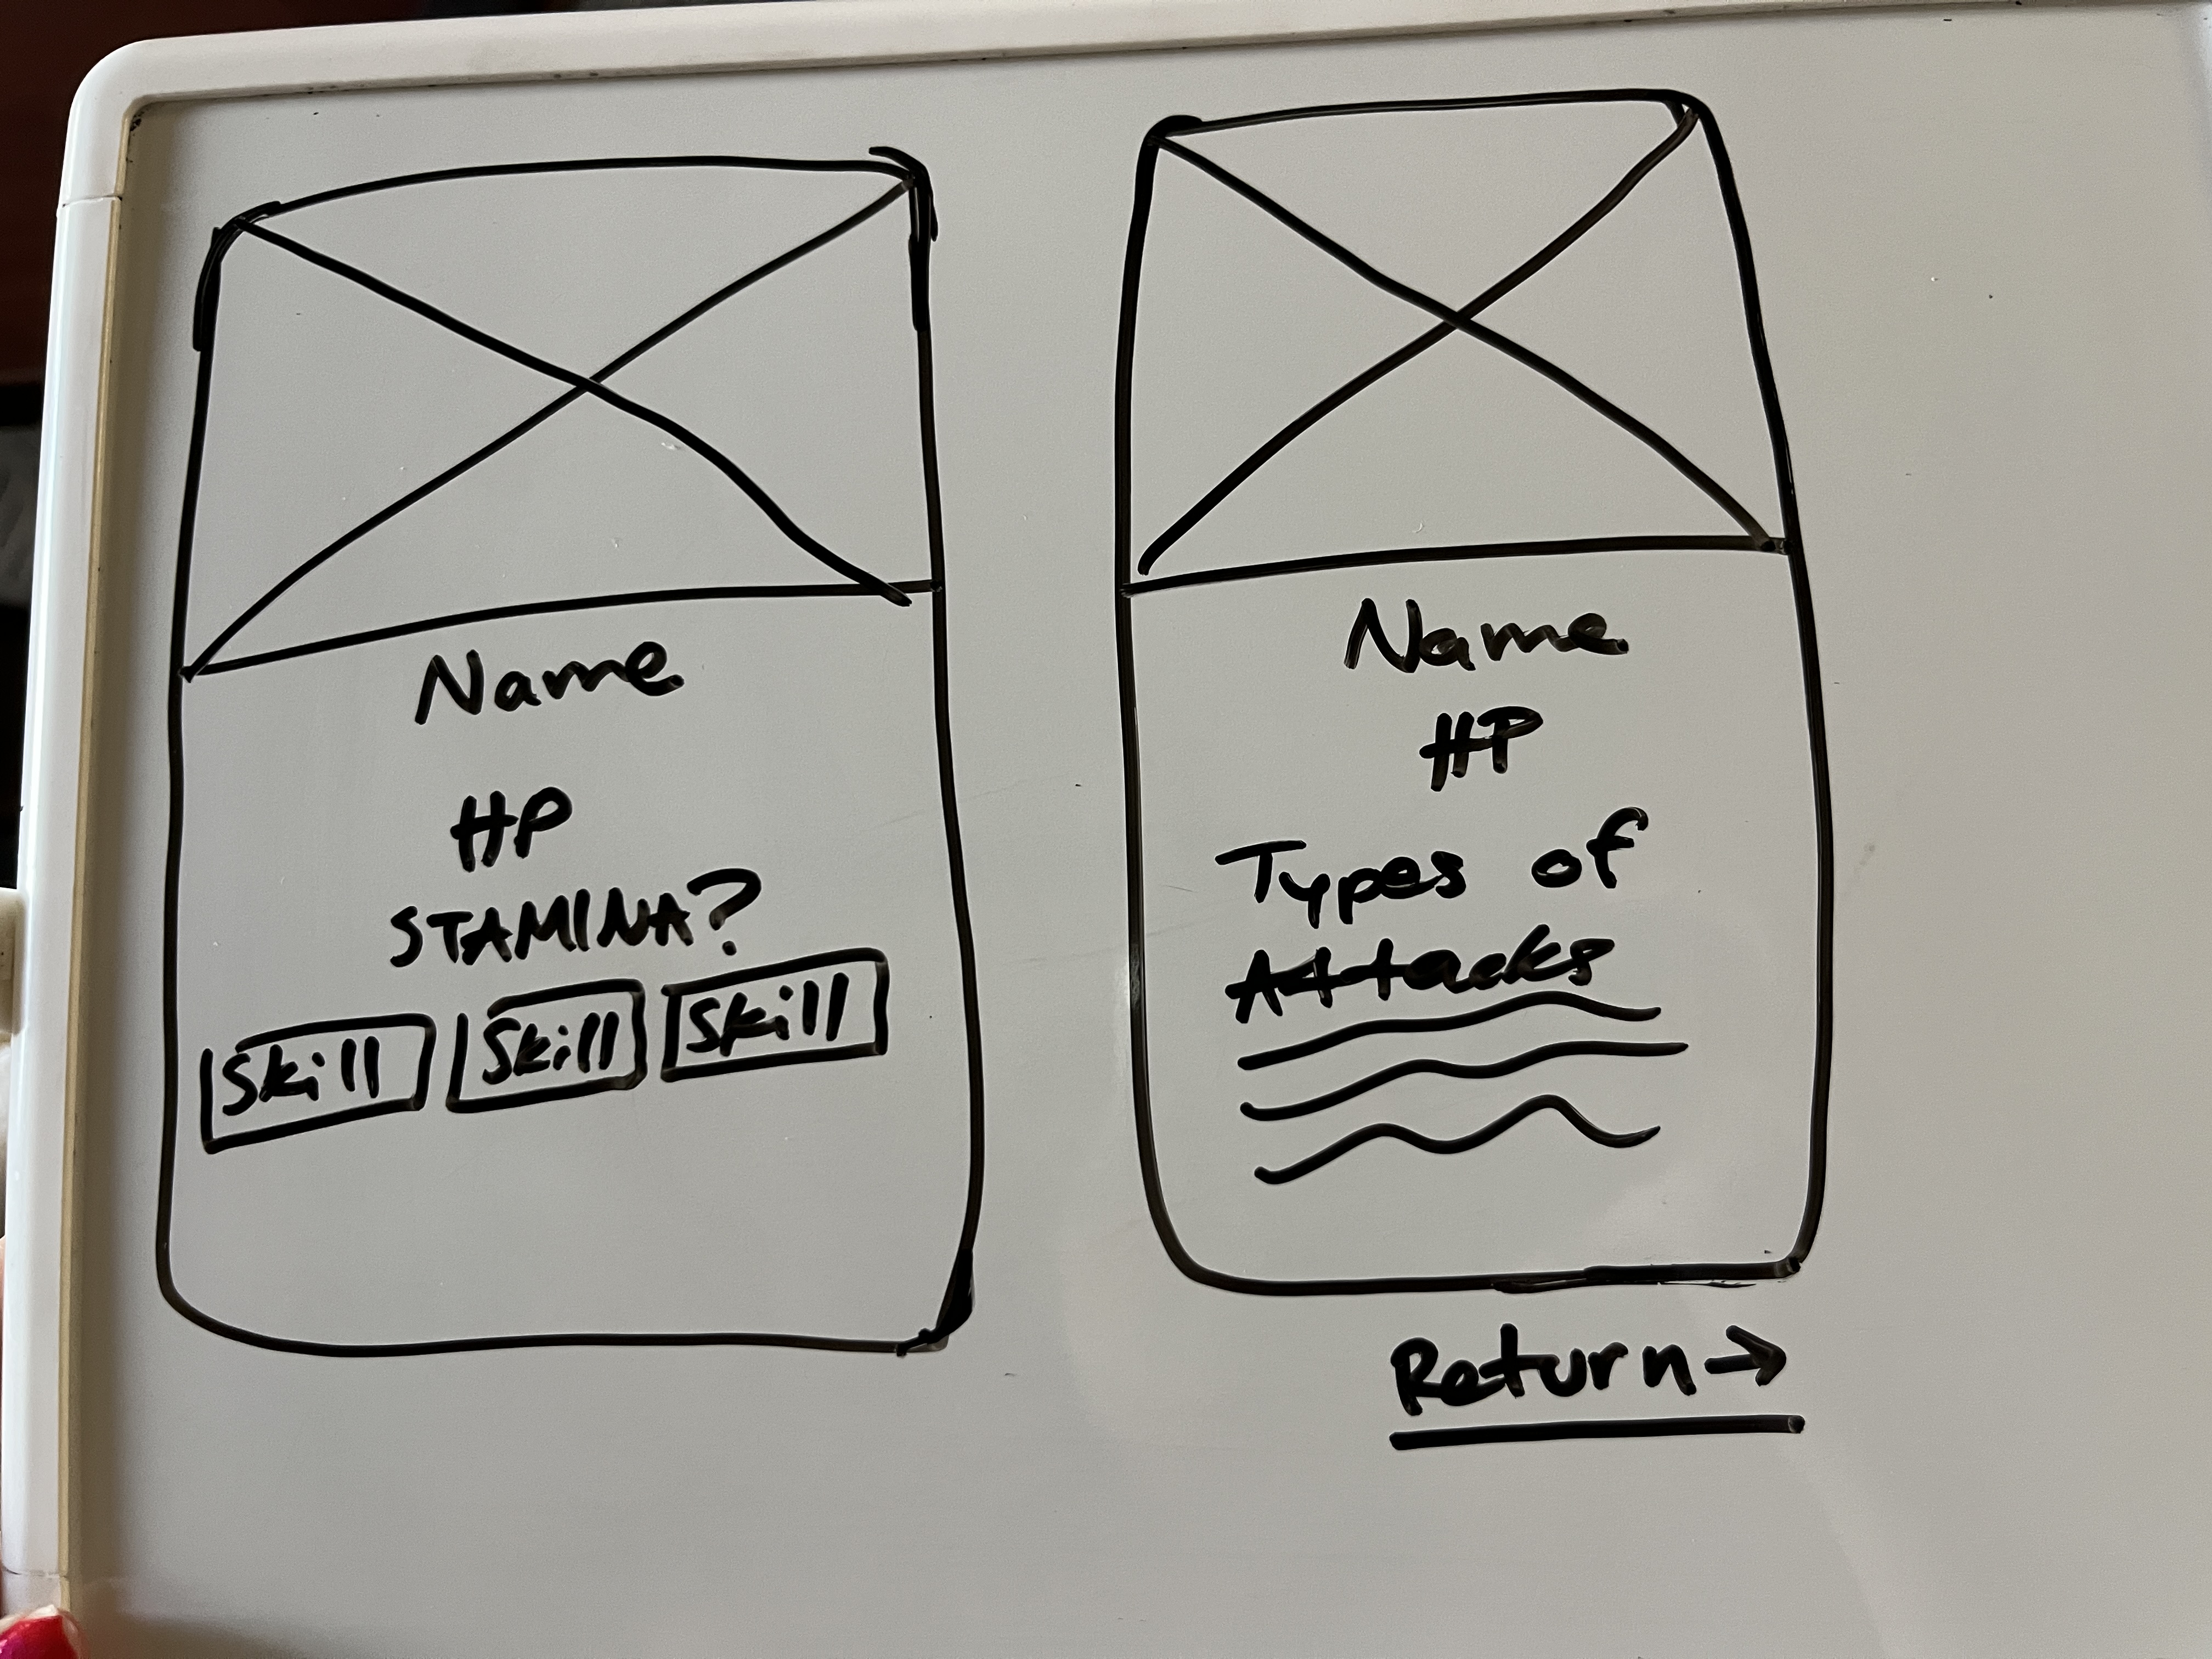 Name
HP
STAMINA?
Skill Skill Skill
Name
HP
Types of
Attacks
Return→